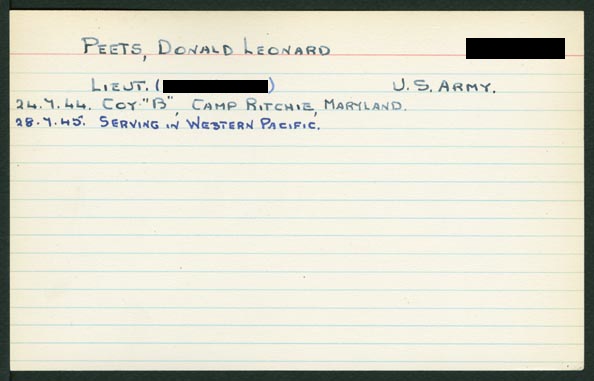 PEETS, DONALD LEONARD
LIEUT. ( ) U.S. ARMY.
24.7.44. COY "B", CAMP RITCHIE, MARYLAND.
28.7.45. SERVING IN WESTERN PACIFIC.